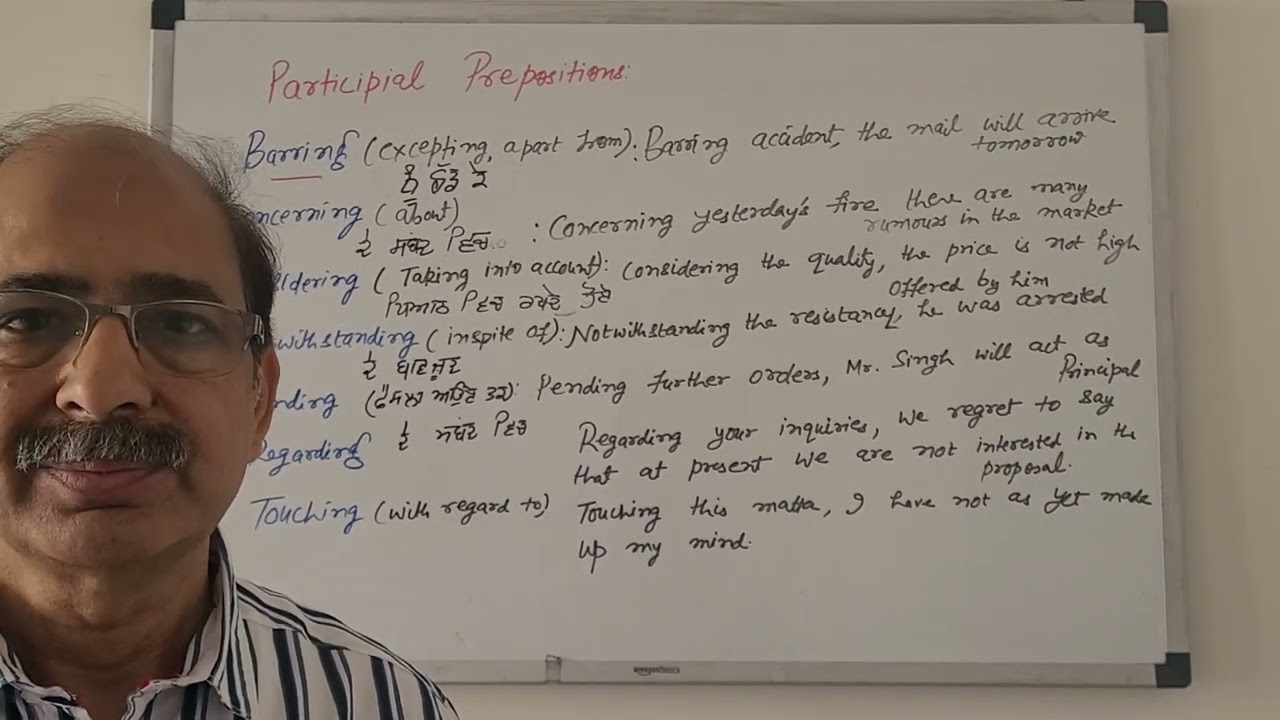 Participial Prepositions:
Barring (excepting, apart from): Barring accident, the mail will arrive
tomorrow
ਨੂੰ ਛੱਡ ਕੇ
ncerning (about)
ਦੇ ਸਬੰਧ ਵਿਚ : Concerning yesterday's fire there are many
rumours in the market
idering (Taking into account): Considering the quality, the price is not high
ਧਿਆਨ ਵਿਚ ਰਖਦੇ ਹੋਏ
offered by him
withstanding (inspite of): Notwithstanding the resistancy, he was arrested
ਦੇ ਬਾਵਜੂਦ
nding (ਫੈਸਲਾ ਆਉਣ ਤਕ): Pending further orders, Mr. Singh will act as
Principal
Regarding ਦੇ ਸਬੰਧ ਵਿਚ Regarding your inquiries, we regret to say
that at present we are not interested in the
proposal.
Touching (with regard to) Touching this matta, I have not as yet made
up my mind.